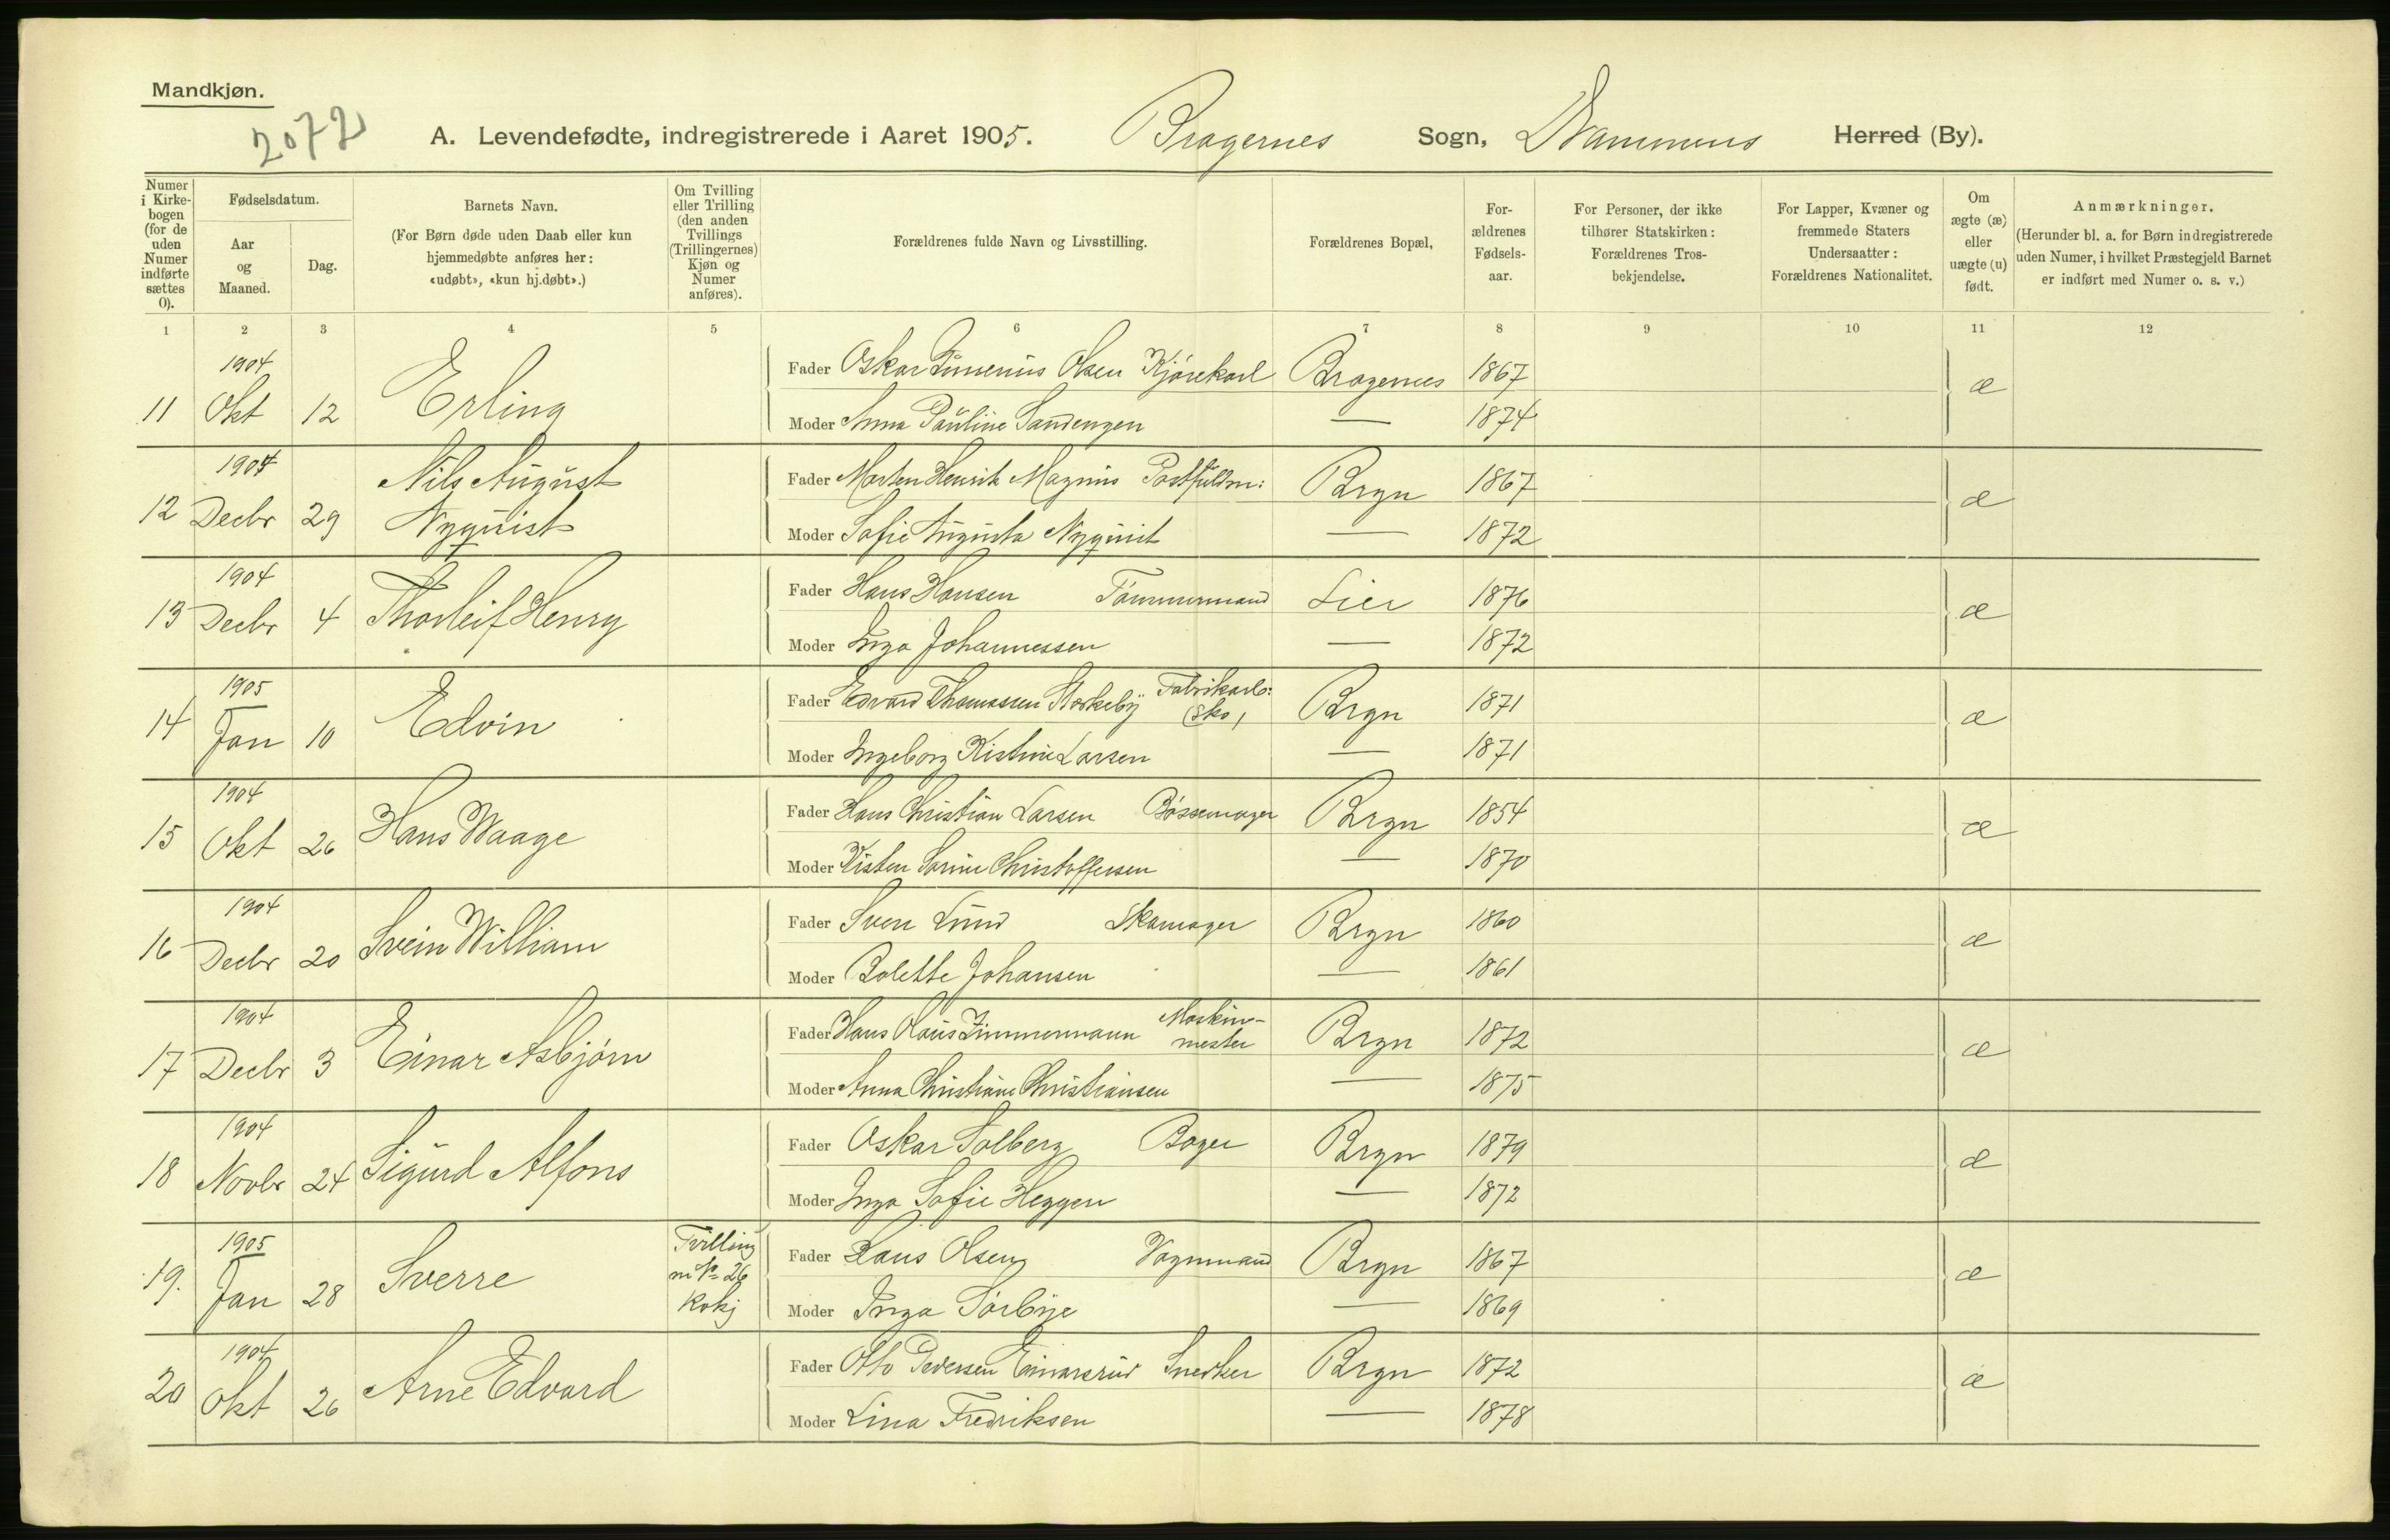 Mandkjøn.
2072
A. Levendefødte, indregistrerede i Aaret 1905. Bragernes Sogn, Drammens Herred (By).
Numer i Kirkebogen (for de uden Numer indførte sættes 0).
Fødselsdatum.
Aar og Maaned.
Dag.
Barnets Navn.
(For Børn døde uden Daab eller kun hjemmedøbte anføres her: «udøbt», «kun hj.døbt».)
Om Tvilling eller Trilling (den anden Tvillings (Trillingernes) Kjøn og Numer anføres).
Forældrenes fulde Navn og Livsstilling.
Forældrenes Bopæl,
Forældrenes Fødselsaar.
For Personer, der ikke tilhører Statskirken: Forældrenes Trosbekjendelse.
For Lapper, Kvæner og fremmede Staters Undersaatter: Forældrenes Nationalitet.
Om ægte (æ) eller uægte (u) født.
Anmærkninger.
(Herunder bl. a. for Børn indregistrerede uden Numer, i hvilket Præstegjeld Barnet er indført med Numer o. s. v.)
1 2 3 4 5 6 7 8 9 10 11 12
11 1904 Okt 12 Erling
Fader Oskar Olsen Kjørekarl Bragernes 1867 æ
Moder Anna Pauline Sandengen — 1874
12 1904 Decbr 29 Nils August Nyquist
Fader Morten Henrik Magnus Postfuldm: Brgn 1867 æ
Moder Sofie Augusta Nyquist — 1872
13 1904 Decbr 4 Thorleif Henry
Fader Hans Hansen Tømmermand Lier 1876 æ
Moder Inga Johannessen — 1872
14 1905 Jan 10 Edvin
Fader Edvard Thomassen Fabrikarb: (Sko) Brgn 1871 æ
Moder Ingeborg Kistine Larsen — 1871
15 1904 Okt 26 Hans Waage
Fader Hans Christian Larsen Bøssemager Brgn 1854 æ
Moder Kisten Sorine Christoffersen — 1870
16 1904 Decbr 20 Svein William
Fader Sven Lund Skomager Brgn 1860 æ
Moder Bolette Johansen — 1861
17 1904 Decbr 3 Einar Asbjørn
Fader Hans Olaus Zimmermann Maskinmester Brgn 1872 æ
Moder Anna Christiane Christiansen — 1875
18 1904 Novbr 24 Sigurd Alfons
Fader Oskar Solberg Bager Brgn 1879 æ
Moder Inga Sofie Heggen — 1872
19. 1905 Jan 28 Sverre Tvilling m № 26 Kvkj
Fader Hans Olsen Vognmand Brgn 1867 æ
Moder Inga Sørbye — 1869
20 1904 Okt 26 Arne Edvard
Fader Otto Pedersen Einarsrud Snedker Brgn 1872 æ
Moder Lina Fredriksen — 1878